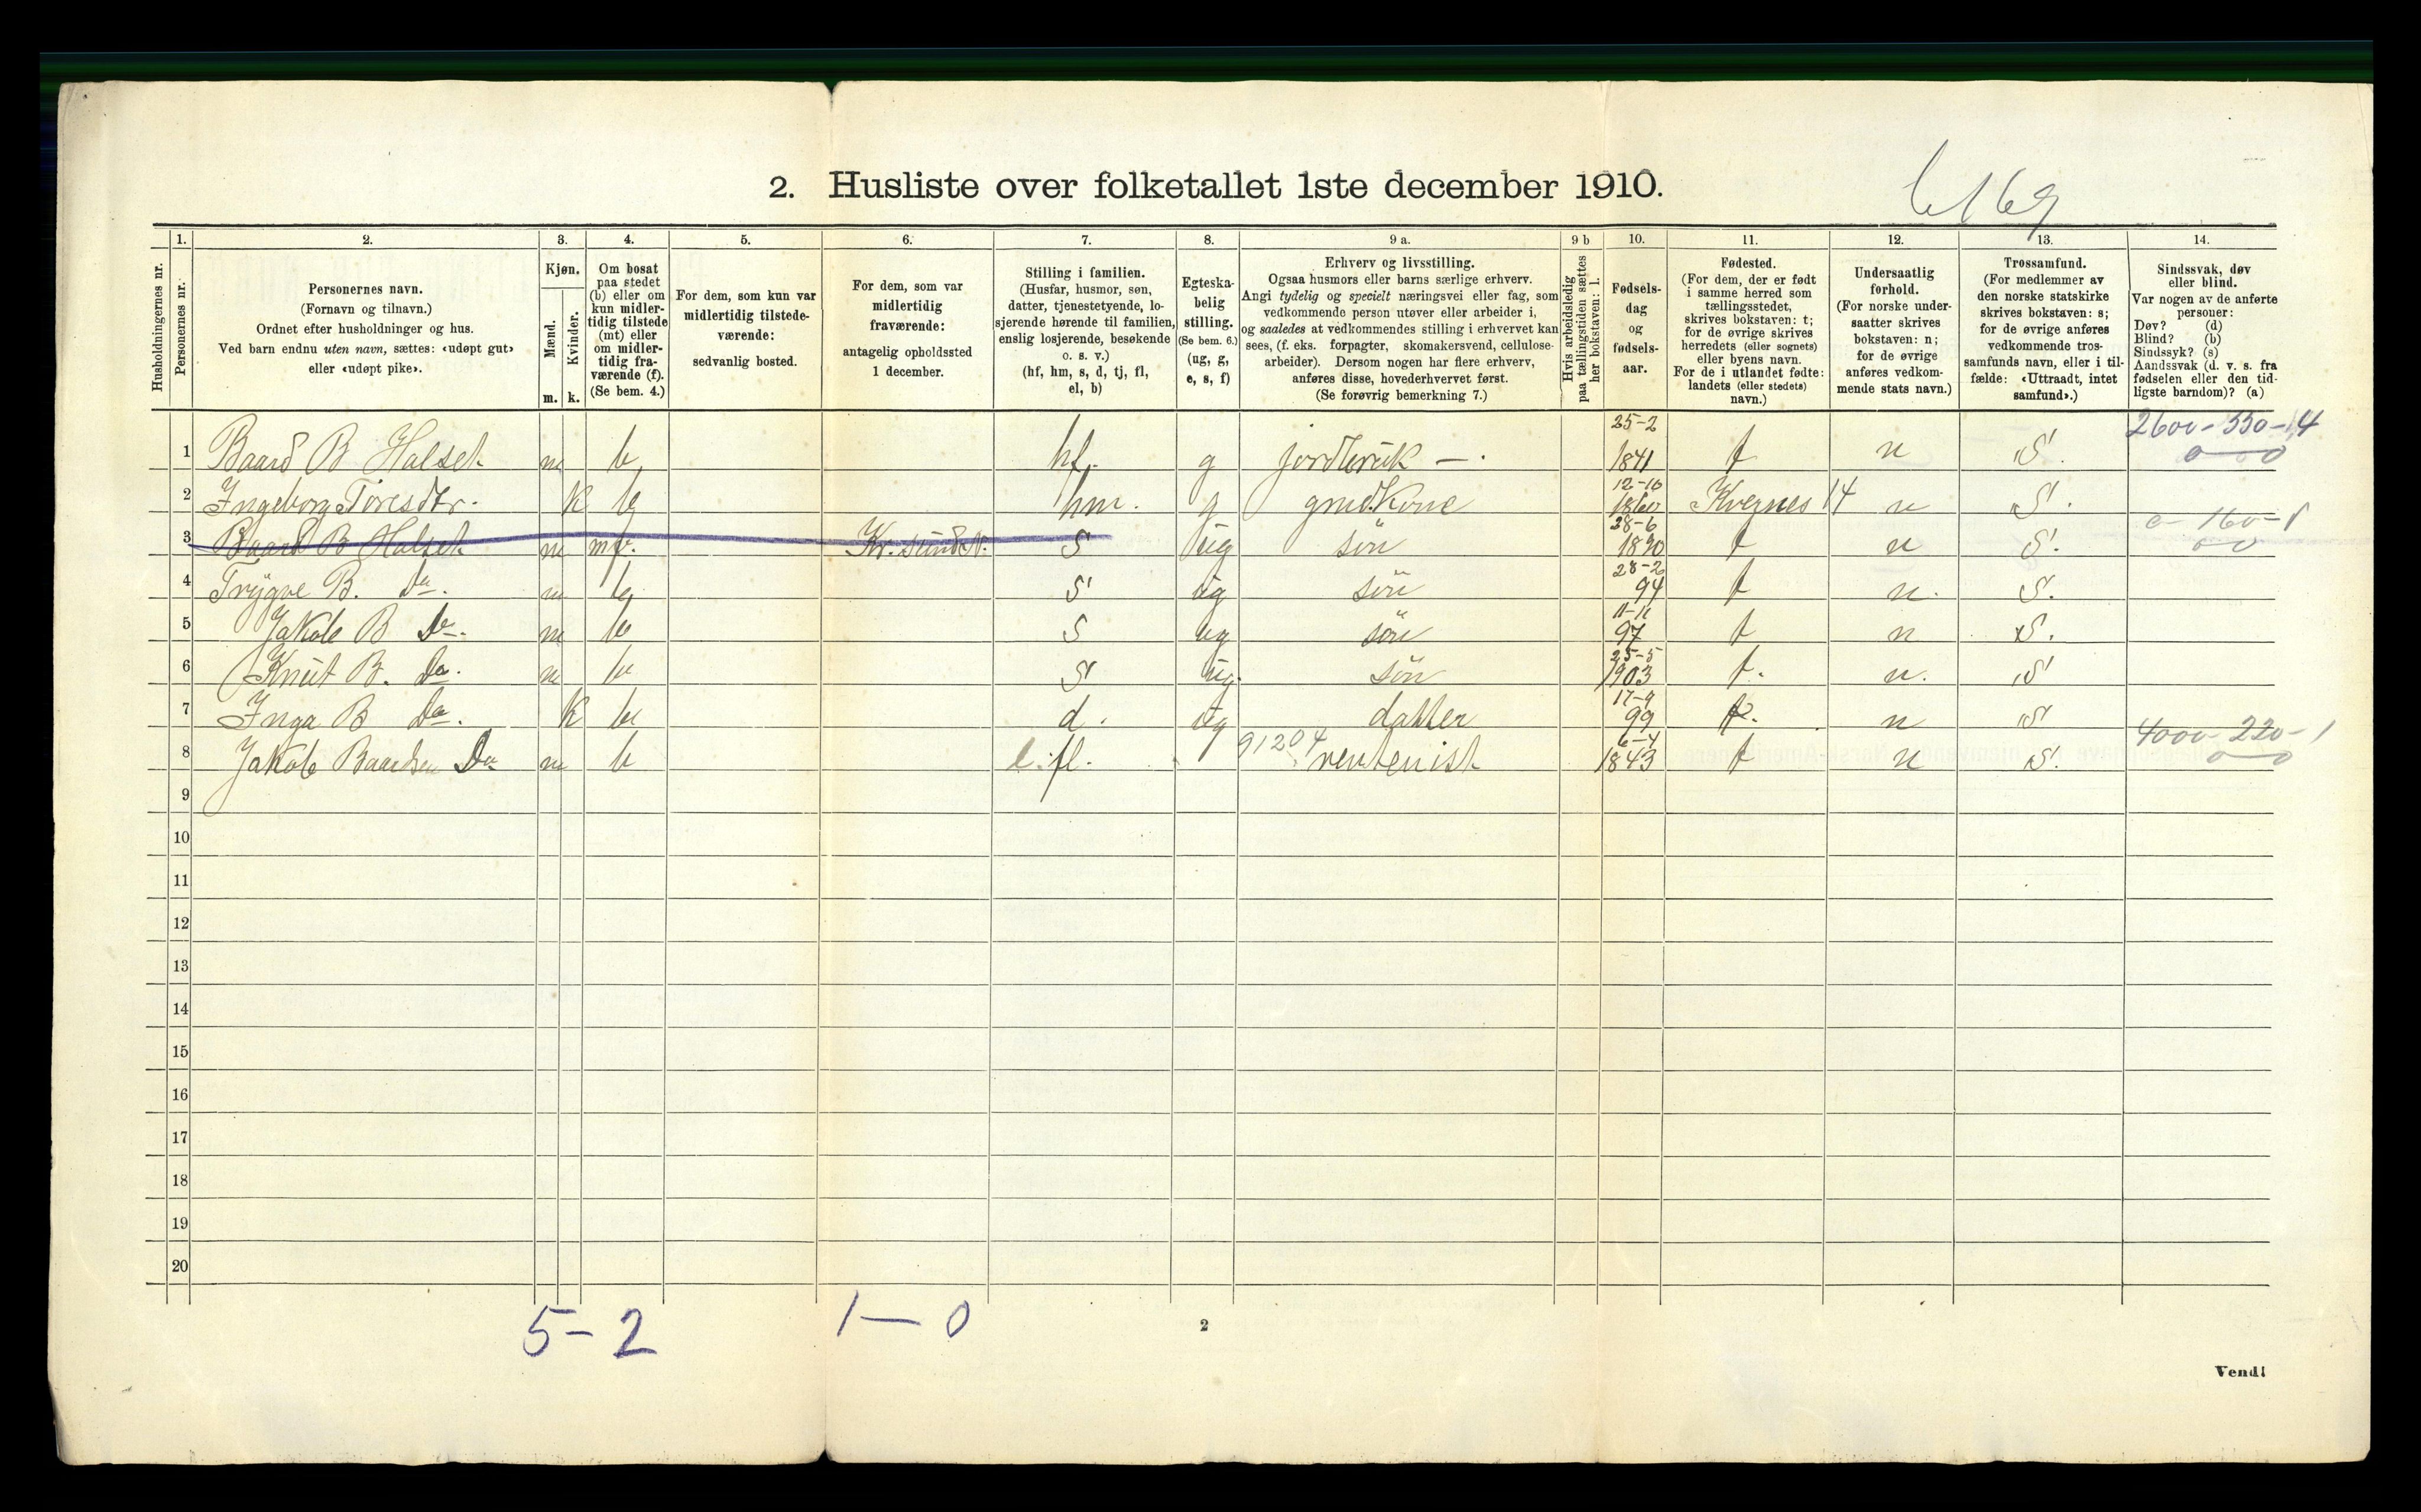 2. Husliste over folketallet 1ste december 1910.
Husholdningernes nr.
1.
Personernes nr.
2.
Personernes navn.
(Fornavn og tilnavn.)
Ordnet efter husholdninger og hus.
Ved barn endnu uten navn, sættes: «udøpt gut»
eller «udøpt pike».
3.
Kjøn.
Mænd.
Kvinder.
m. k.
4.
Om bosat
paa stedet
(b) eller om
kun midler-
tidig tilstede
(mt) eller
om midler-
tidig fra-
værende (f).
(Se bem. 4.)
5.
For dem, som kun var
midlertidig tilstede-
værende:
sedvanlig bosted.
6.
For dem, som var
midlertidig
fraværende:
antagelig opholdssted
1 december.
7.
Stilling i familien.
(Husfar, husmor, søn,
datter, tjenestetyende, lo-
sjerende hørende til familien,
enslig losjerende, besøkende
o. s. v.)
(hf, hm, s, d, tj, fl,
el, b)
8.
Egteska-
belig
stilling.
(Se bem. 6.)
(ug, g,
e, s, f)
9 a.
Erhverv og livsstilling.
Ogsaa husmors eller barns særlige erhverv.
Angi tydelig og specielt næringsvei eller fag, som
vedkommende person utøver eller arbeider i,
og saaledes at vedkommendes stilling i erhvervet kan
sees, (f. eks. forpagter, skomakersvend, cellulose-
arbeider). Dersom nogen har flere erhverv,
anføres disse, hovederhvervet først.
(Se forøvrig bemerkning 7.)
9 b
Hvis arbeidsledig
paa tællingstiden sættes
her bokstaven: l.
10.
Fødsels-
dag
og
fødsels-
aar.
11.
Fødested.
(For dem, der er født
i samme herred som
tællingsstedet,
skrives bokstaven: t;
for de øvrige skrives
herredets (eller sognets)
eller byens navn.
For de i utlandet fødte:
landets (eller stedets)
navn.)
12.
Undersaatlig
forhold.
(For norske under-
saatter skrives
bokstaven: n;
for de øvrige
anføres vedkom-
mende stats navn.)
13.
Trossamfund.
(For medlemmer av
den norske statskirke
skrives bokstaven: s;
for de øvrige anføres
vedkommende tros-
samfunds navn, eller i til-
fælde: «Uttraadt, intet
samfund».)
14.
Sindssvak, døv
eller blind.
Var nogen av de anførte
personer:
Døv? (d)
Blind? (b)
Sindssyk? (s)
Aandssvak (d. v. s. fra
fødselen eller den tid-
ligste barndom)? (a)
1 Baard B Halset m b hf. g jordbruk — . 25-2 1841 t n S. 2600-550-4
2 Ingeborg Toresdtr. k b hm. g gmd.kone 12-10 1860 Kvernes 14 n S.
3 Baard B Halset m mf. Kr.sund N. S ug søn 28-6 1890 t n S. 0-160-1
4 Trygve B. Do. m b S ug søn 28-2 94 t n. S.
5 Jakob B Do. m b S ug søn 11-11 97 t n S.
6 Knut B. Do. m b S ug. søn 25-5 1903 t. n. S
7 Inga B Do. k b d. ug datter 17-9 99 t. n S
8 Jakob Baardsen Do m b e. fl. 91204 rentenist 6-4 1843 t n S. 4000-220-1
9
10
11
12
13
14
15
16
17
18
19
20
5-2 1-0
2
Vend!